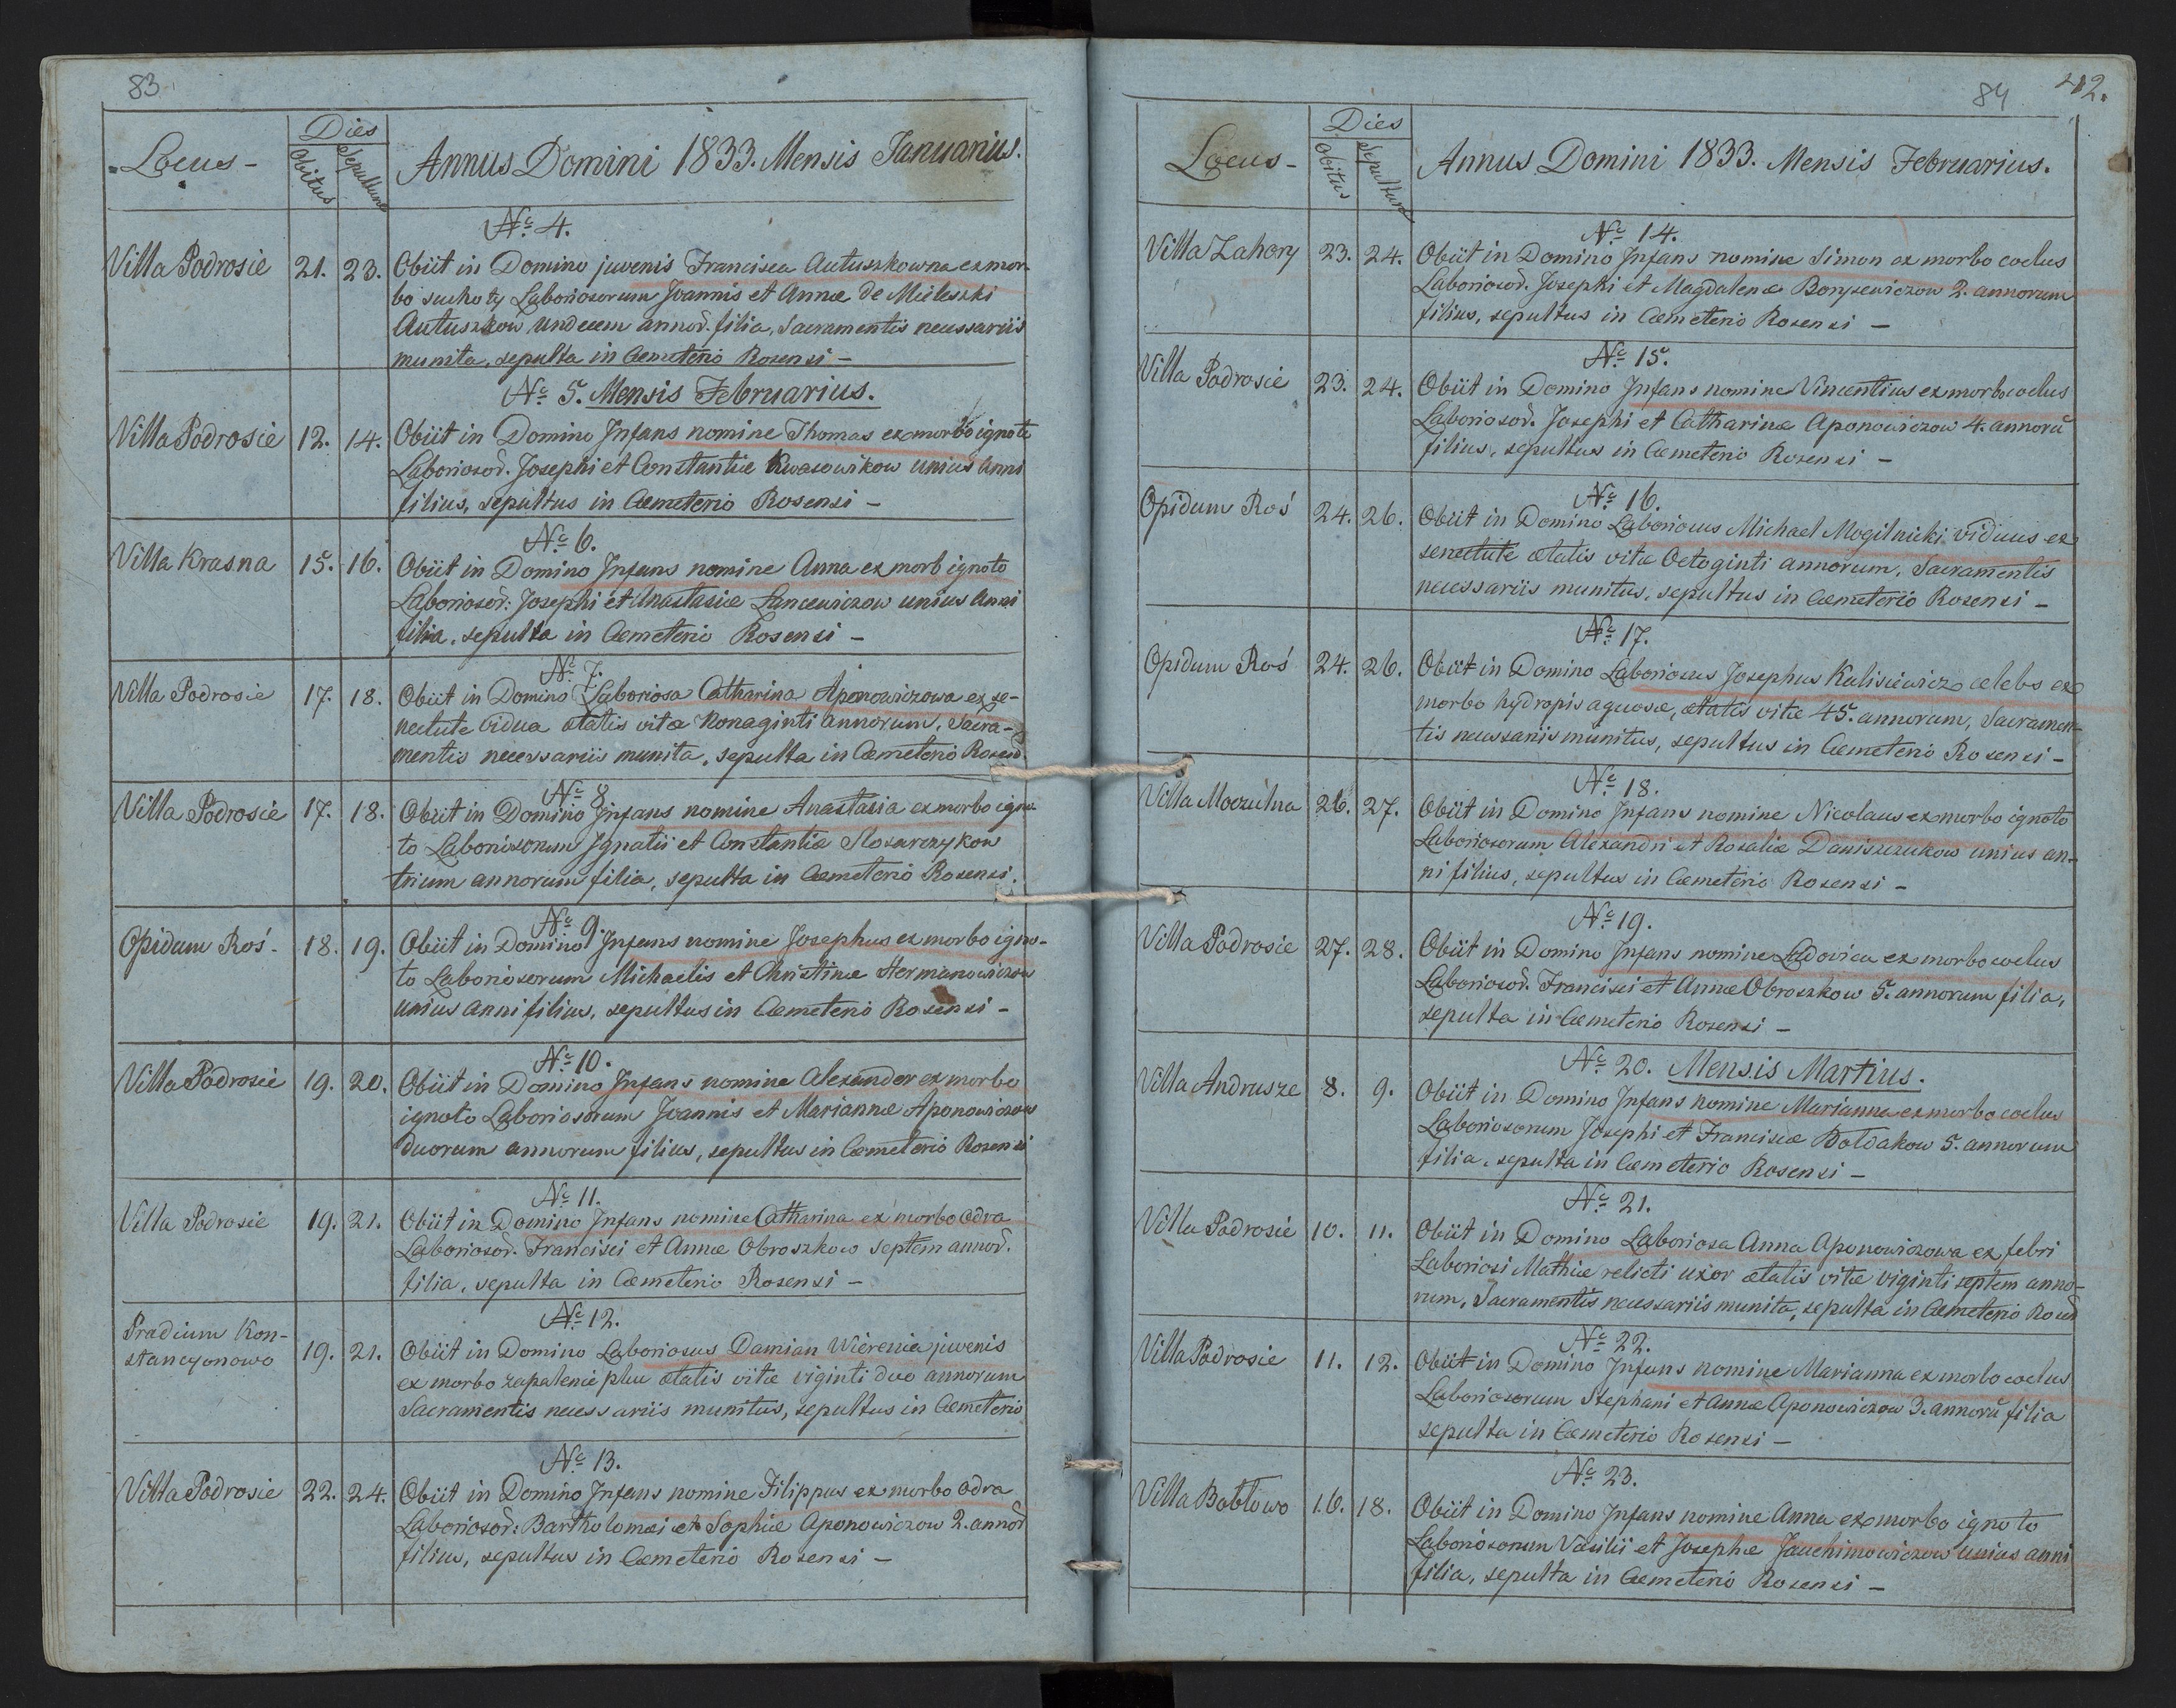 83
Locus -
Dies
Obitus
Sepulturæ
Annus Domini 1833. Mensis Januarius.
№ 4.
Villa Podrosie 21. 23. Obiit in Domino juvenis Francisca Autuszkowna ex mor-
bo suchoty Laboriosorum Joannis et Annæ de Mieleszki
Autuszkow undecem annor. filia, Sacramentis necessariis
munita, sepulta in Cæmeterio Rosensi -
№ 5. Mensis Februarius.
Villa Podrosie 12. 14. Obiit in Domino Infans nomine Thomas ex morbo ignoto
Laboriosor. Josephi et Constantiæ Kwasowikow unius anni
filius, sepultus in Cæmeterio Rosensi -
№ 6.
Villa Krasna 15. 16. Obiit in Domino Infans nomine Anna ex morb ignoto
Laboriosor: Josephi et Anastasiæ Lancewiczow unius anni
filia, sepulta in Cæmeterio Rosensi -
№ 7.
Villa Podrosie 17. 18. Obiit in Domino Laboriosa Catharina Aponowiczowa ex se-
nectute vidua ætatis vitæ Nonaginti annorum, Sacra-
mentis necessariis munita, sepulta in Cæmeterio
№ 8
Villa Podrosie 17. 18. Obiit in Domino Infans nomine Anastasia ex morbo igno-
to Laboriosorum Ignatii et Constantiæ Slosarczykow
trium annorum filia, sepulta in Cæmeterio Rosensi.
№ 9
Opidum Roś - 18. 19. Obiit in Domino Infans nomine Josephus ex morbo igno-
to Laboriosorum Michaelis et Christinæ Hermanowiczow
unius anni filius, sepultus in Cæmeterio Rosensi -
№ 10.
Villa Podrosie 19. 20. Obiit in Domino Infans nomine Alexander ex morbo
ignoto Laboriosorum Joannis et Mariannæ Aponowiczow
duorum annorum filius, sepultus in Cæmeterio Rosensi
№ 11.
Villa Podrosie 19. 21. Obiit in Domino Infans nomine Catharina ex morbo odra
Laboriosor. Francisci et Annæ Obroszkow septem annor.
filia, sepulta in Cæmeterio Rosensi -
№ 12.
Prædium Kon-
stancyonowo 19. 21. Obiit in Domino Laboriosus Damian juvenis
ex morbo zapalenie płuc ætatis vitæ viginti duo annorum
Sacramentis necessariis munitus, sepultus in Cæmeterio
№ 13.
Villa Podrosie 22. 24. Obiit in Domino Infans nomine Filippus ex morbo odra
Laboriosor: Bartholomæi et Sophiæ Aponowiczow 2. annor
filius, sepultus in Cæmeterio Rosensi -
84 42.
Locus -
Dies
Obitus
Sepulturæ
Annus Domini 1833. Mensis Februarius.
№ 14.
Villa Zahory 23. 24. Obiit in Domino Infans nomine Simon ex morbo coclus
Laboriosor. Josephi et Magdalenæ Borysewiczow 2. annorum
filius, sepultus in Cæmeterio Rosensi -
№ 15.
Villa Podrosie 23. 24. Obiit in Domino Infans nomine Vincentius ex morbo coclus
Laboriosor. Josephi et Catharinæ Aponowiczow 4. annorū
filius, sepultus in Cæmeterio Rosensi -
№ 16.
Opidum Roś 24. 26. Obiit in Domino Laboriosus Michael Mogilnicki viduus ex
senectute ætatis vitæ Octoginti annorum, Sacramentis
necessariis munitus, sepultus in Cæmeterio Rosensi -
№ 17.
Opidum Roś 24. 26. Obiit in Domino Laboriosus Josephus Kalisiewicz celebs ex
morbo hydropis aquosæ, ætatis vitæ 45. annorum, Sacramen-
tis necessariis munitus, sepultus in Cæmeterio Rosensi -
№ 18.
Villa Moczulna 26. 27. Obiit in Domino Infans nomine Nicolaus ex morbo ignoto
Laboriosorum Alexandri et Rosaliæ Daniszczukow unius an-
ni filius, sepultus in Cæmeterio Rosensi -
№ 19.
Villa Podrosie 27. 28. Obiit in Domino Infans nomine Ludovica ex morbo coclus
Laboriosor. Francisci et Annæ Obroszkow 5. annorum filia,
sepulta in Cæmeterio Rosensi -
№ 20. Mensis Martius.
Villa Andrusze 8. 9. Obiit in Domino Infans nomine Marianna ex morbo coclus
Laboriosorum Josephi et Franciscæ Boldakow 5. annorum
filia, sepulta in Cæmeterio Rosensi -
№ 21.
Villa Podrosie 10. 11. Obiit in Domino Laboriosa Anna Aponowiczowa ex febri
Laboriosi Mathiæ relicti uxor ætatis vitæ viginti septem anno-
rum, Sacramentis necessariis munita, sepulta in Cæmeterio
№ 22.
Villa Podrosie 11. 12. Obiit in Domino Infans nomine Marianna ex morbo coclus
Laboriosorum Stephani et Annæ Aponowiczow 3. annorū filia
sepulta in Cæmeterio Rosensi -
№ 23.
Villa Bobłowo 16. 18. Obiit in Domino Infans nomine Anna ex morbo ignoto
Laboriosorum Vasilii et Josephæ Jauchimowiczow unius anni
filia, sepulta in Cæmeterio Rosensi -